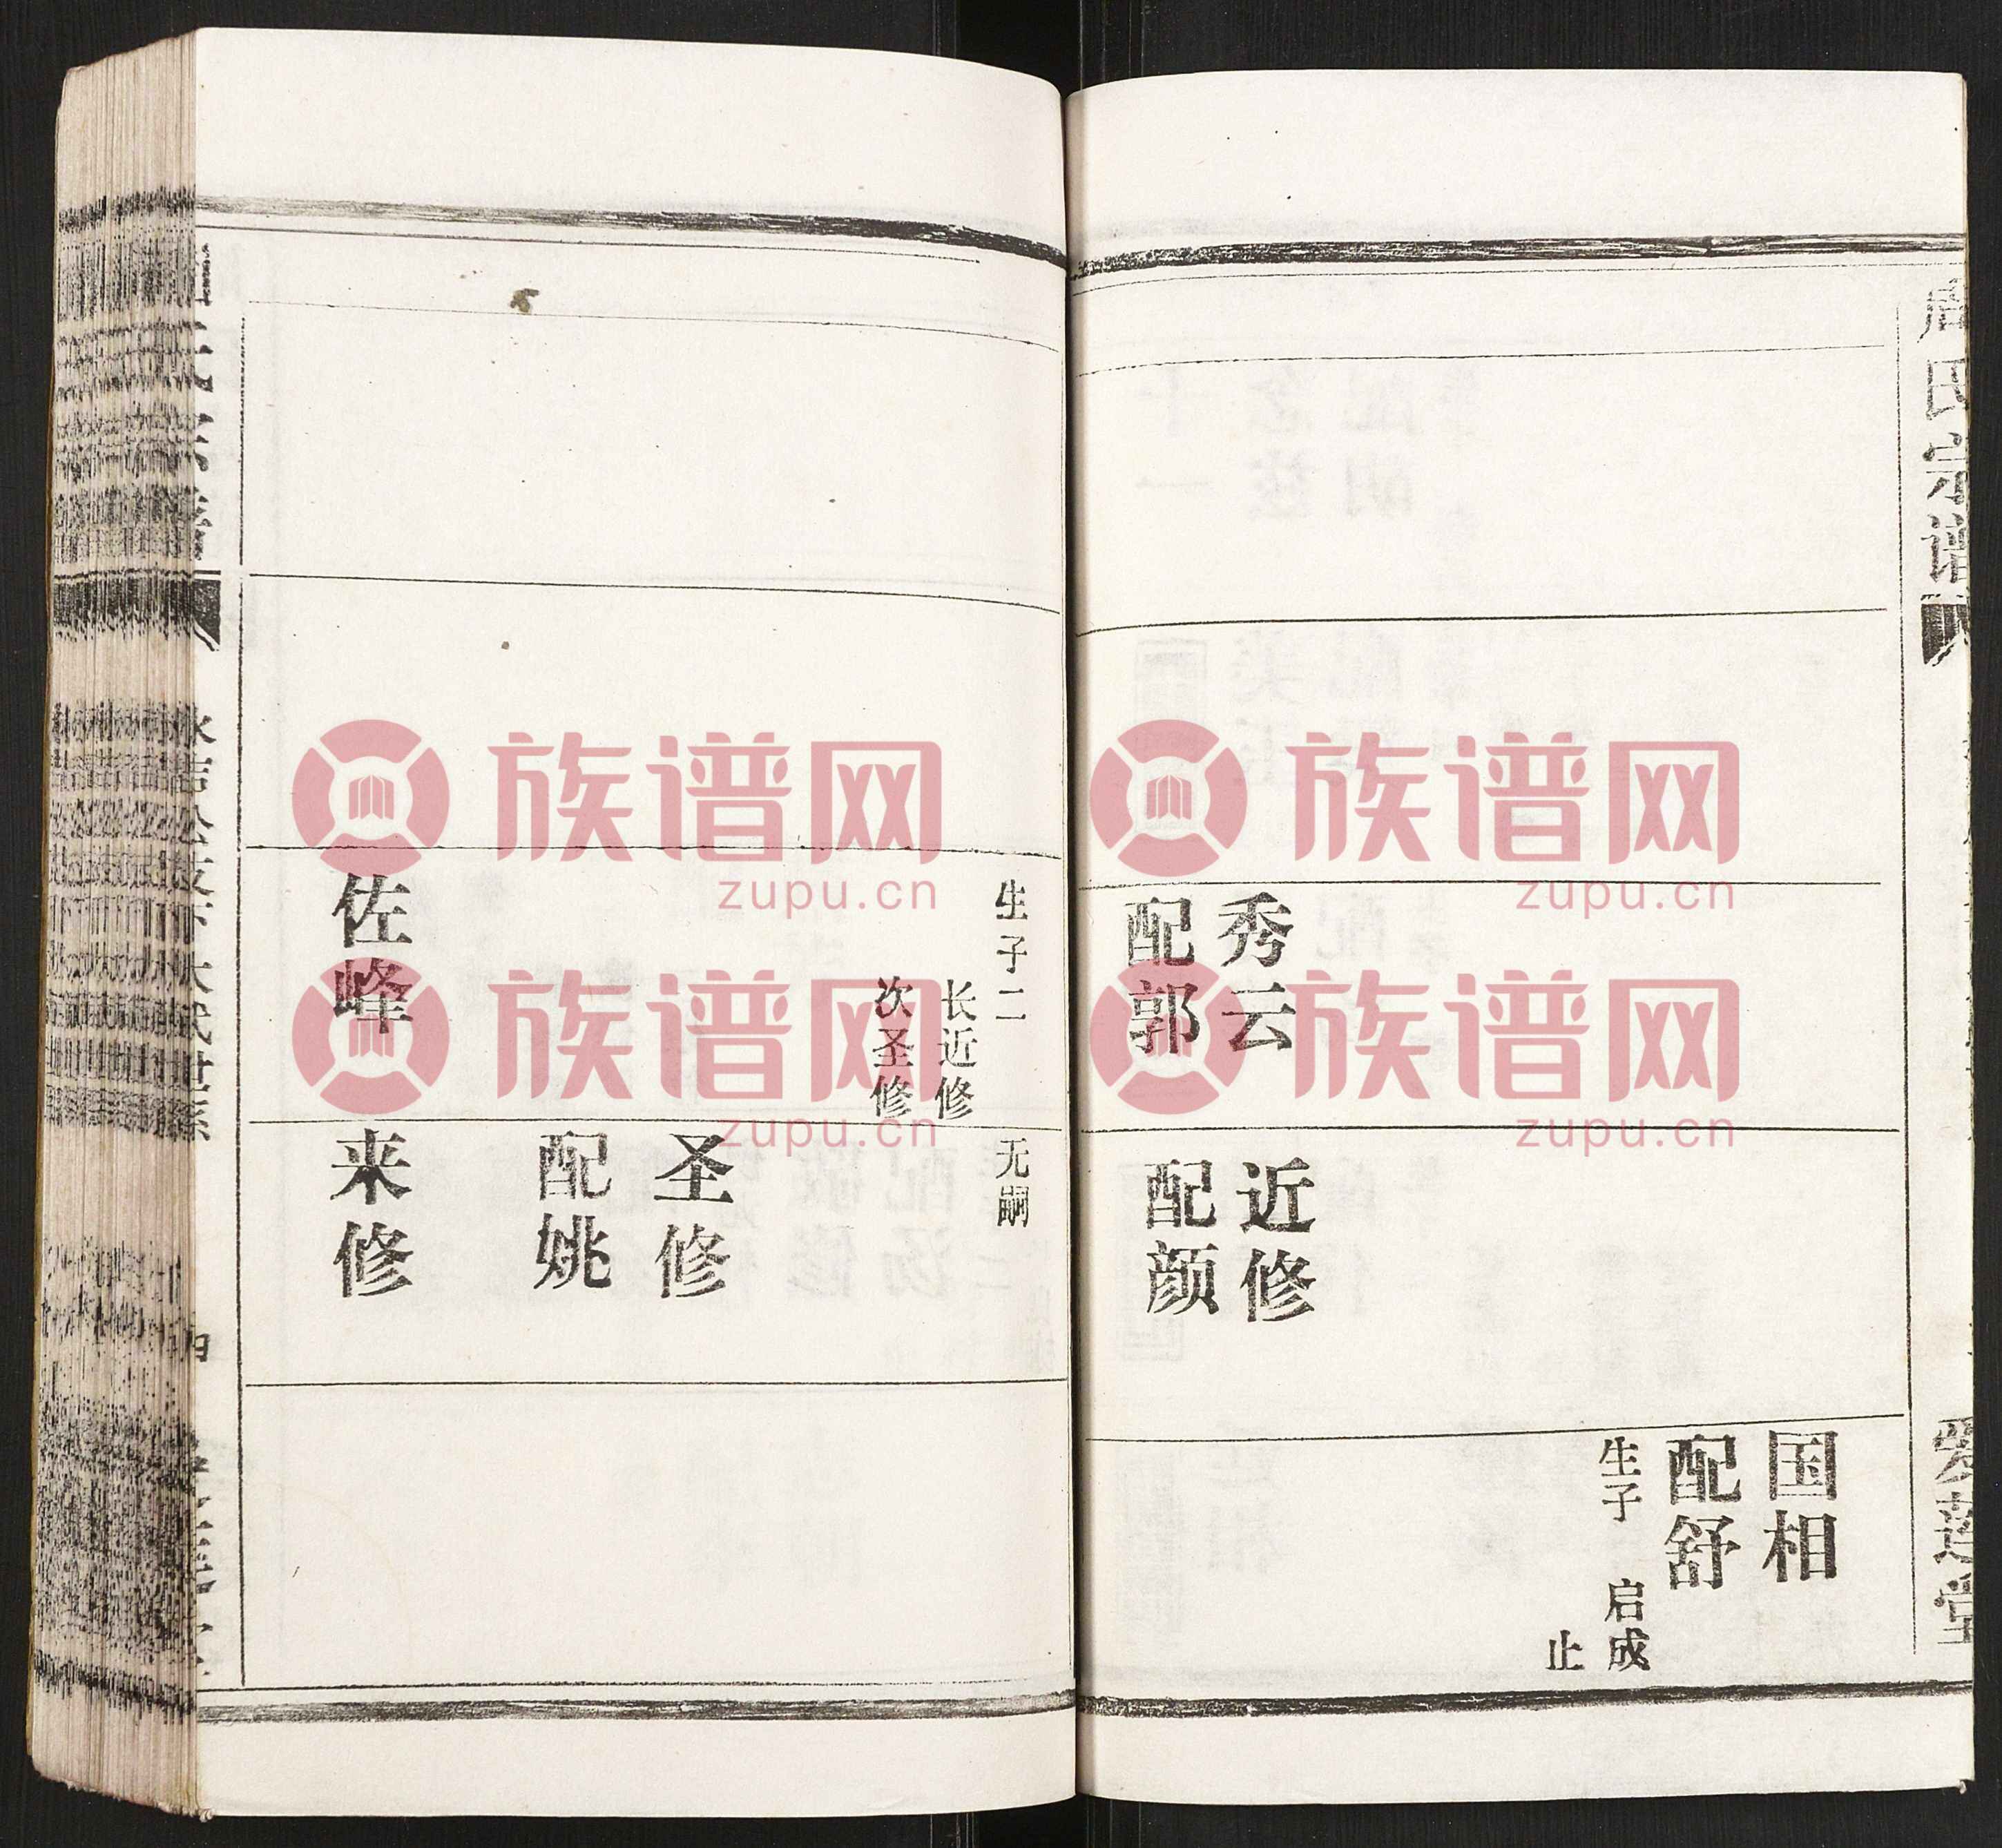 氏宗谱
爱莲堂
国相
配舒
生子 启成
止
秀云
配郭
近修
配颜
生子二
长近修
次圣修
无嗣
圣修
配姚
佐峰
来修
族谱网
zupu.cn
族谱网
zupu.cn
族谱网
zupu.cn
族谱网
zupu.cn